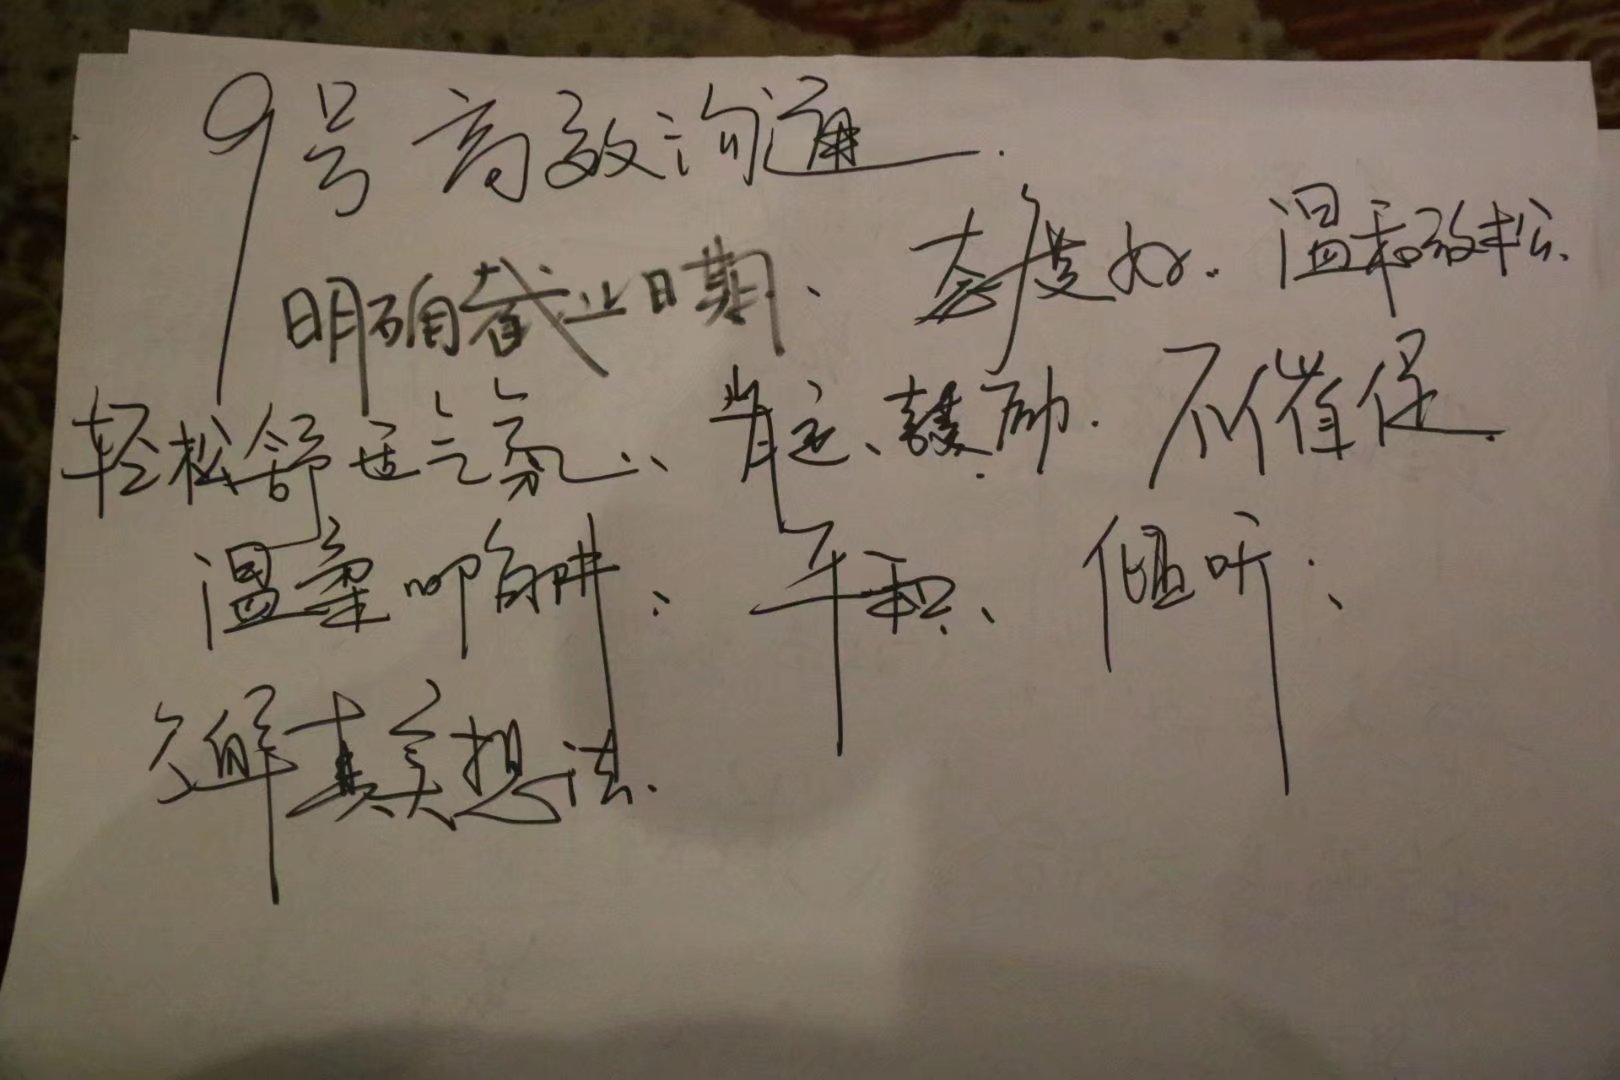 9号高效沟通.
明确截止日期、态度好.温和放松.
轻松舒适气氛、肯定、鼓励.不催促.
温柔 、平和、倾听、
了解真实想法.